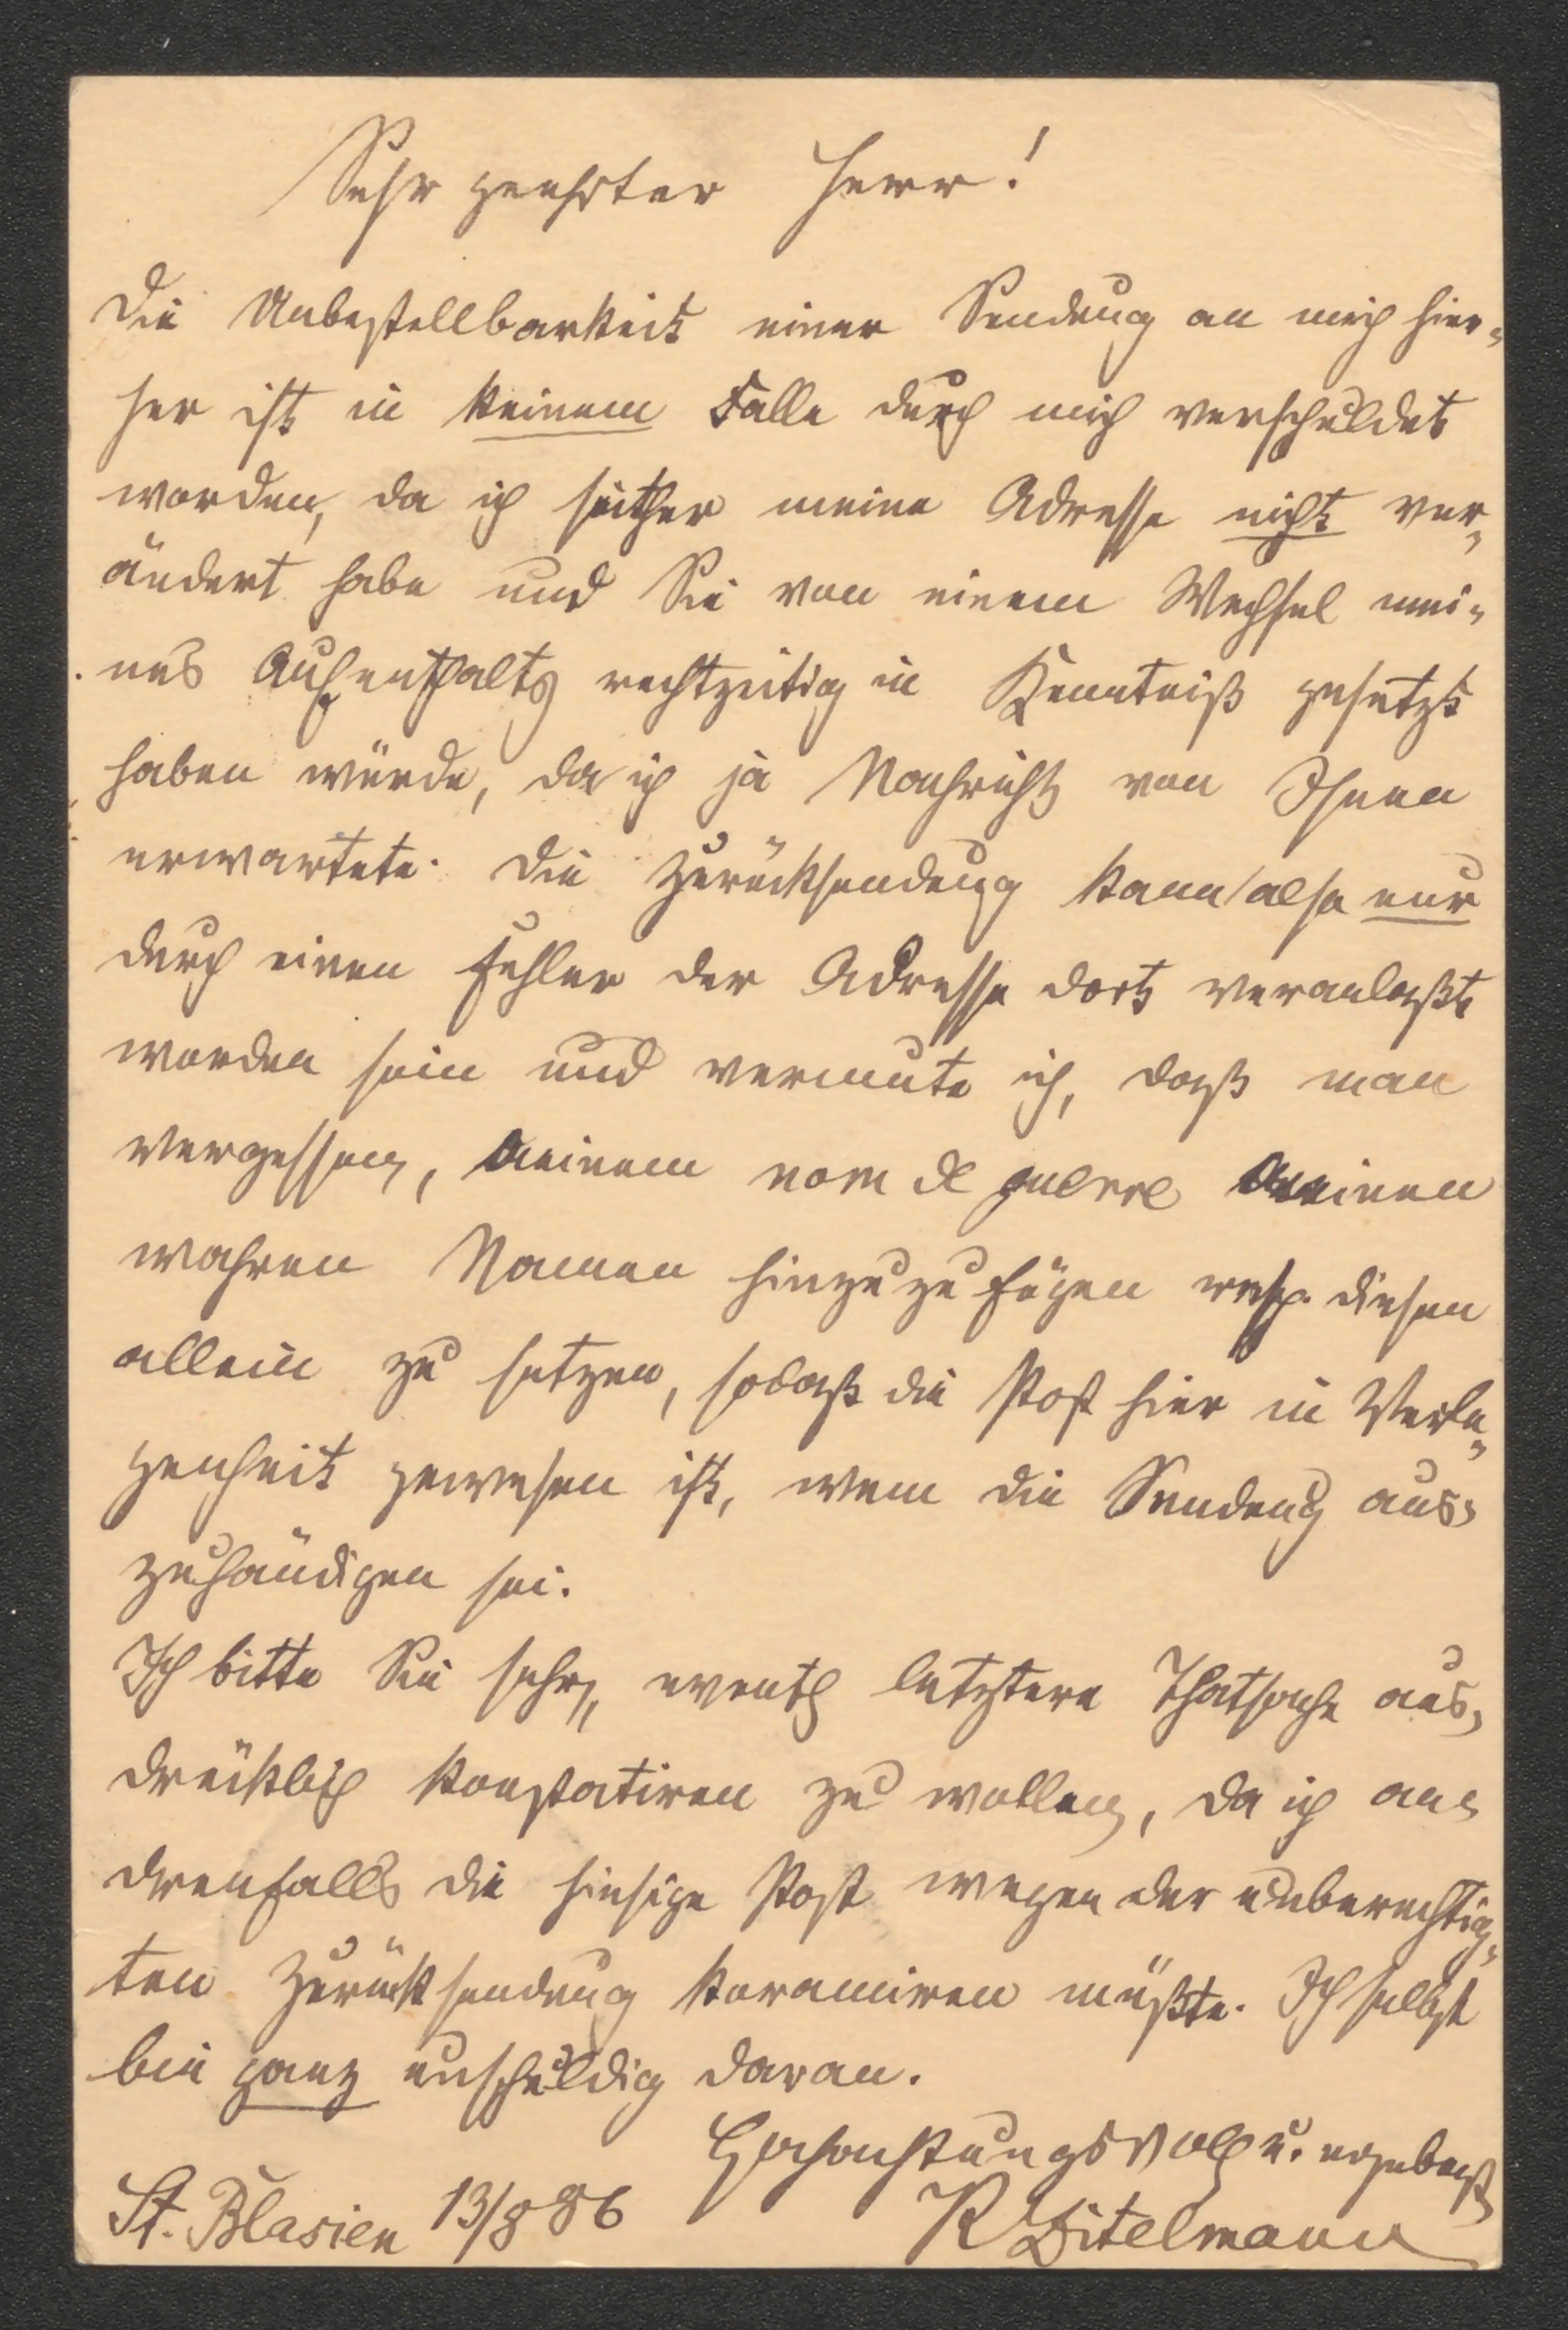 Sehr geehrter Herr!
Die Unbestellbarkeit einer Sendung an mich hier-
her ist in keinem Falle durch mich verschuldet
worden, da ich seither meine Adresse nicht ver-
ändert habe und Sie von einem Wechsel mei-
nes Aufenthalts rechtzeitig in Kenntniß gesetzt
haben würde, da ich ja Nachricht von Ihnen
erwartete. Die Zurücksendung kann also nur
durch einen Fehler der Adresse dort veranlaßt
worden sein und vermute ich, daß man
vergessen, meinem nom de guerre meinen
wahren Namen hinzuzufügen resp. diesen
allein zu setzen, sodaß die Post hier in Verle-
genheit gewesen ist, wem die Sendung aus-
zuhändigen sei.
Ich bitte Sie sehr, eventl letztere Thatsache aus-
drücklich konstatiren zu wollen, da ich an-
drenfalls die hiesige Post wegen der unberechtig-
ten Zurücksendung koramiren müßte. Ich selbst
bin ganz unschuldig daran.
Hochachtungsvoll u. ergebenst
St. Blasien 13/8 86
R Zitelmann